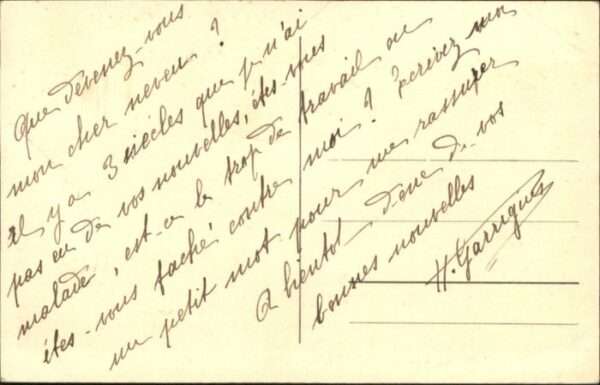 Que devenez-vous
mon cher neveu ?
Il y a 3 siècles que je n'ai
pas eu de vos nouvelles, êtes-vous
malade, est-ce le trop de travail ou
êtes-vous faché contre moi ? Ecrivez moi
un petit mot pour me rassurer
A bientot donc de vos
bonnes nouvelles
H. Garrigues